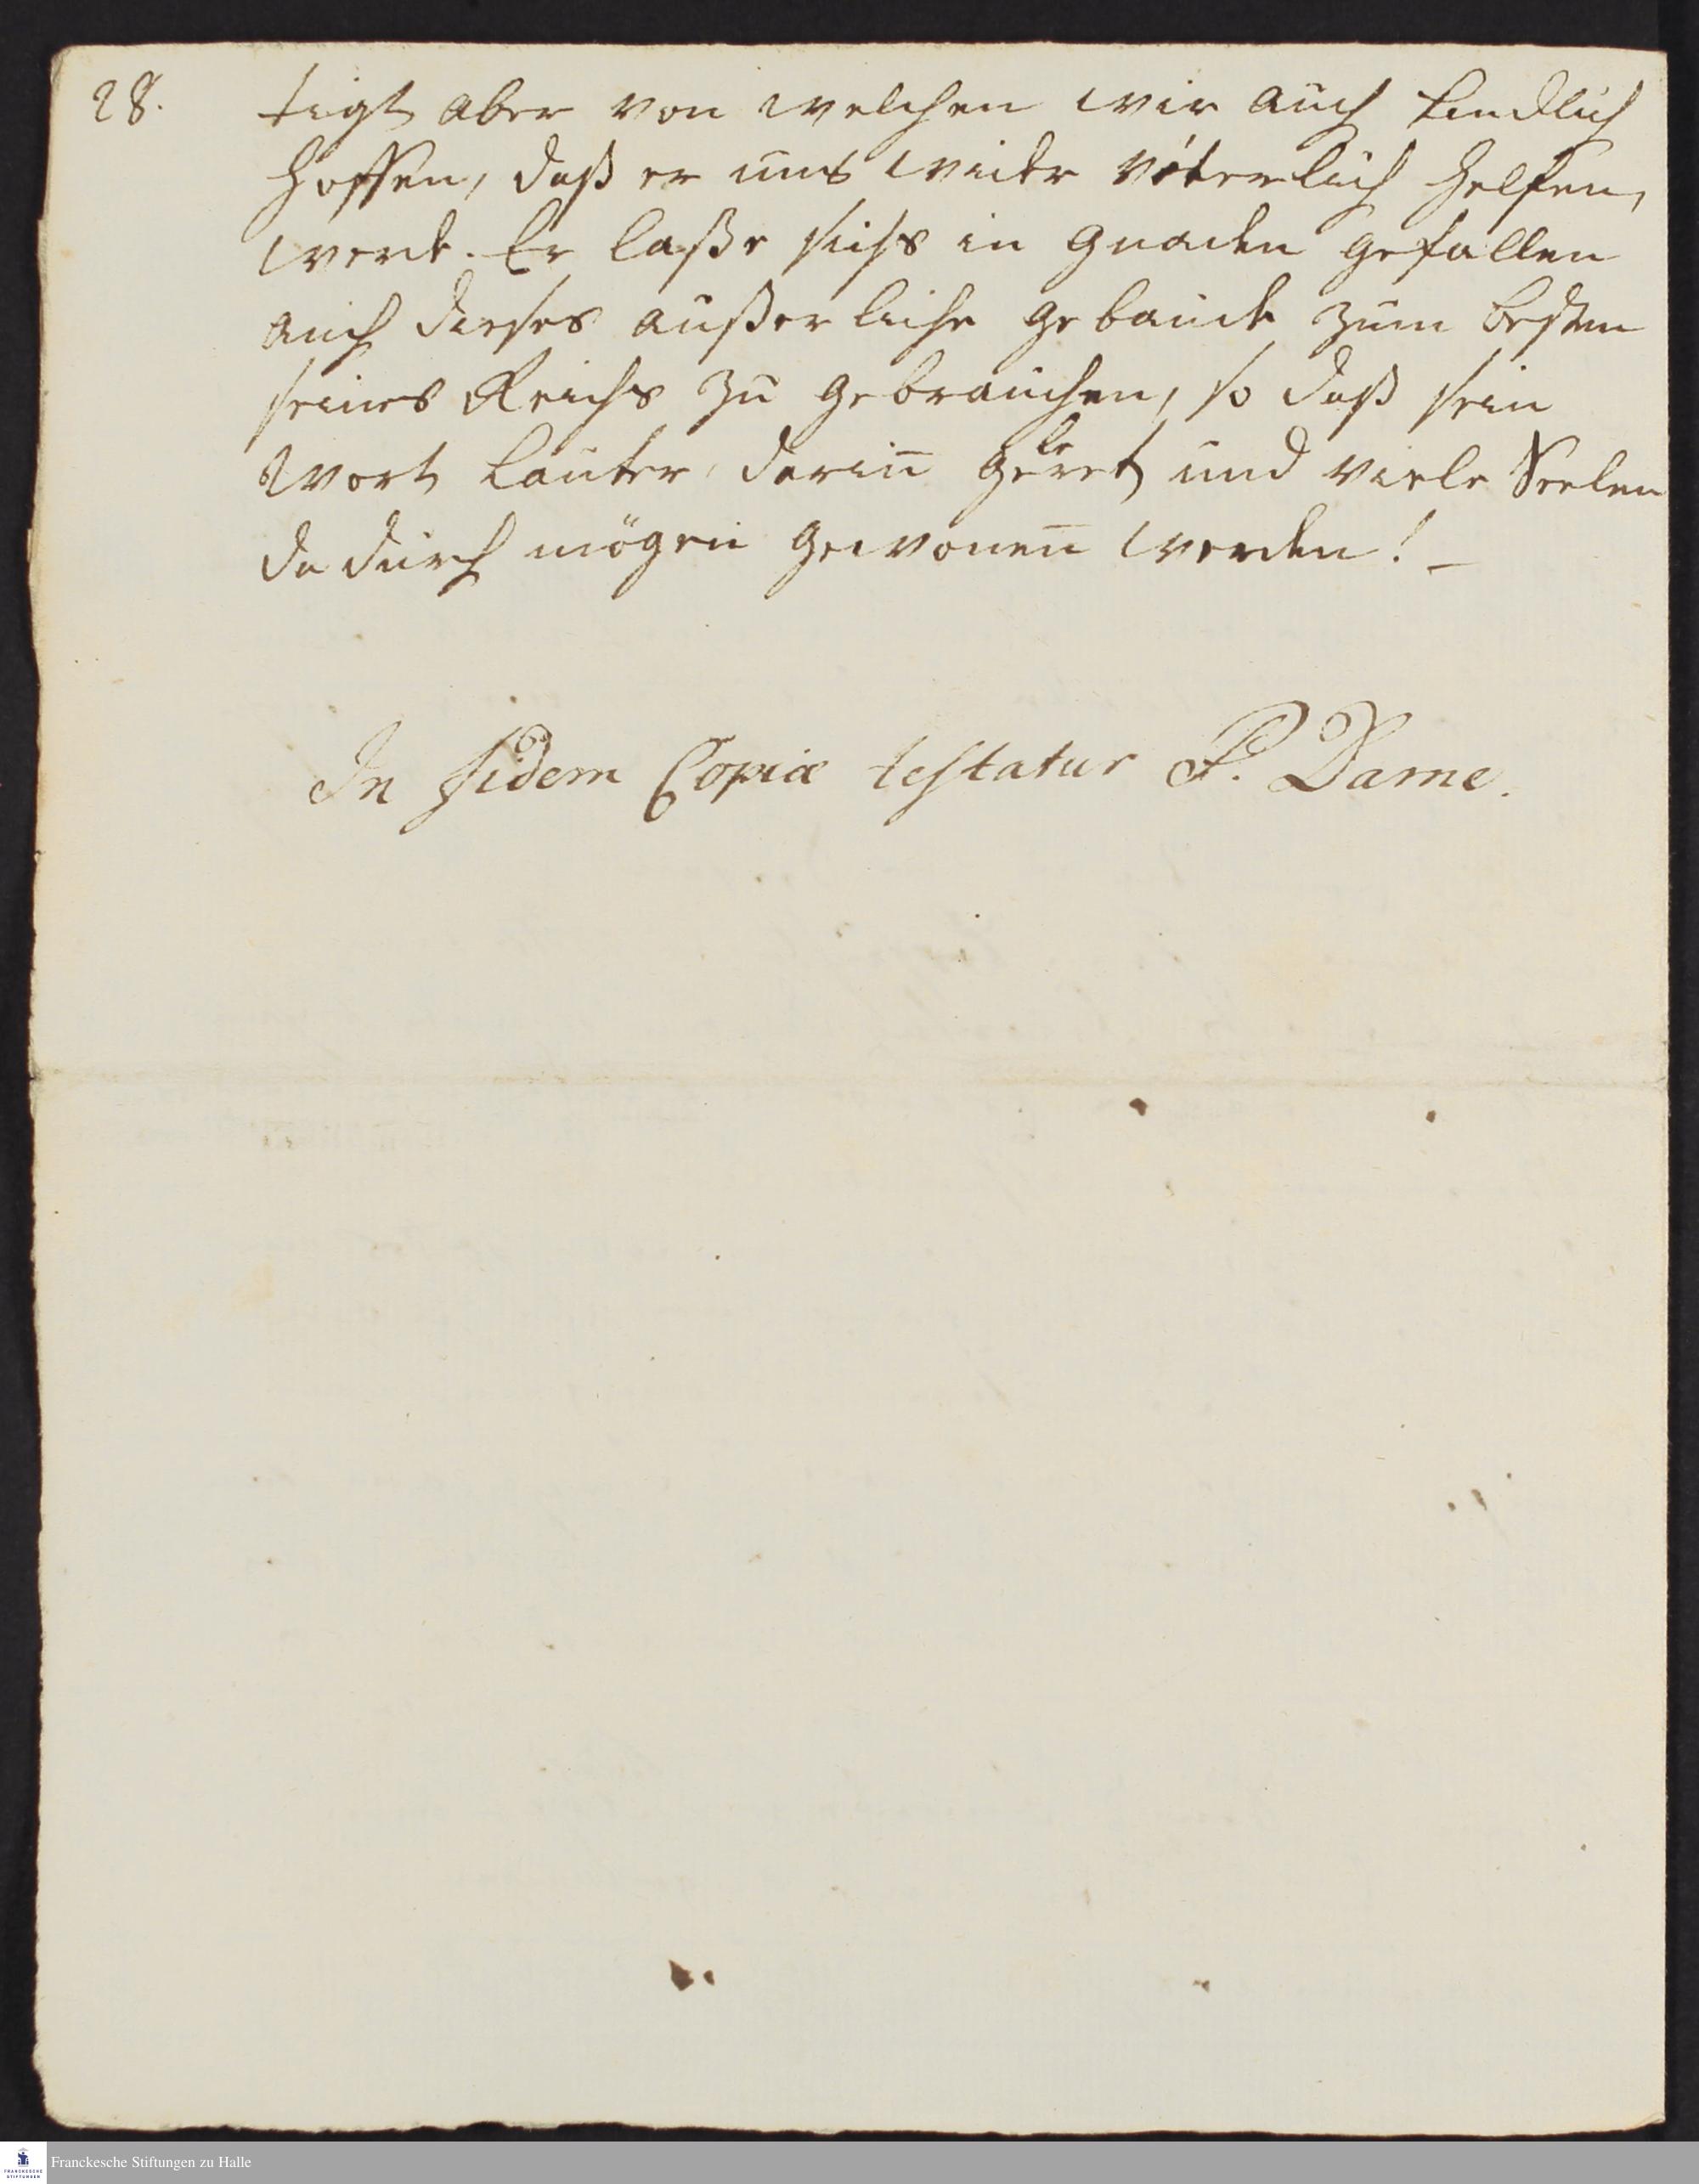 28.
tigt aber von welchen wir auch kindlich
hoffen, daß er uns wider väterlich helfen,
werde. Er laße sichs in Gnaden gefallen
auch dieses außerliche gebaude zum besten
seines Reichs zu gebrauchen, so daß sein
Wort lauter darin̄ geleret und viele Seelen
dadurch mögen gewonen̄ werden! _
In fidem Copiæ testatur P. Dame.
FRANCKESCHE STIFTUNGEN
Franckesche Stiftungen zu Halle